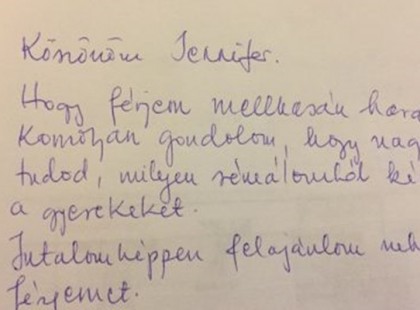 Köszönöm Jennifer.
Hogy férjem mellkasán hara
Komolyan gondolom, hogy nag
tudod, milyen rémálomból ké
a gyerekeket.
Jutalomképpen felajánlom neh
férjemet.